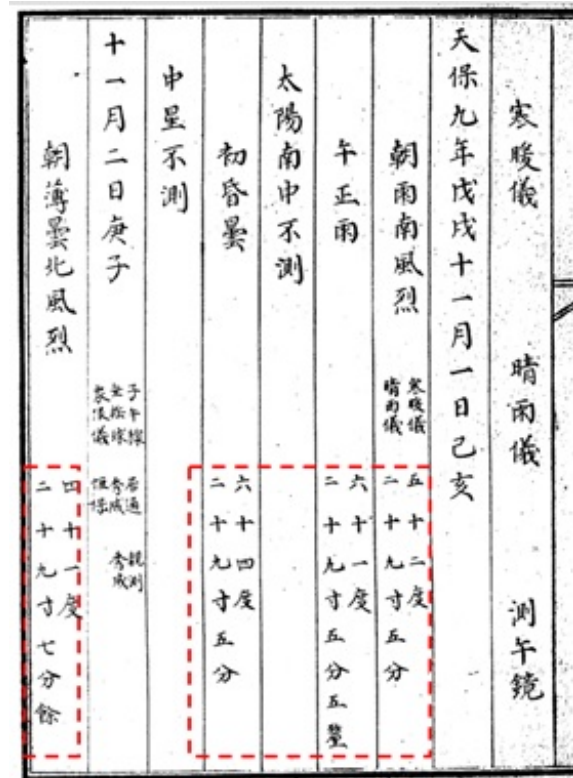 寒暖儀 晴雨儀 測午鏡
天保九年戊戌十一月一日己亥
朝雨南風烈 寒暖儀 五十二度
晴雨儀 二十九寸五分
午正雨 六十一度
二十九寸五分五釐
太陽南中不測
初昏曇 六十四度
二十九寸五分
中星不測
十一月二日庚子 子午線
秀成 觀測
秀成
朝薄曇北風烈 四十一度
二十九寸七分餘